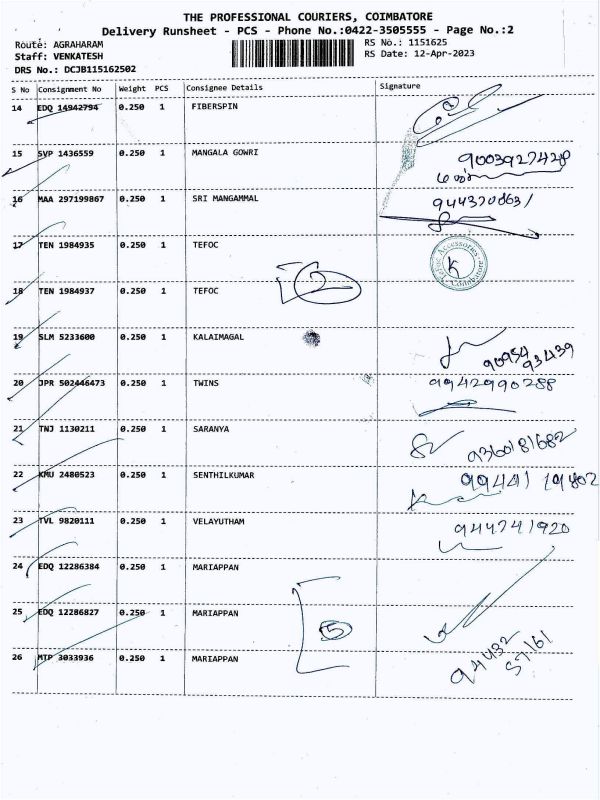 THE PROFESSIONAL COURIERS, COIMBATORE
Delivery Runsheet - PCS - Phone No.:0422-3505555 - Page No.:2
Route: AGRAHARAM
RS No.: 1151625
Staff: VENKATESH
RS Date: 12-Apr-2023
DRS No.: DCJB115162502
S No Consignment No Weight PCS Consignee Details Signature
14 EDQ 14942794 0.250 1 FIBERSPIN
15 SVP 1436559 0.250 1 MANGALA GOWRI
9003927428
16 MAA 297199867 0.250 1 SRI MANGAMMAL
17 TEN 1984935 0.250 1 TEFOC
Tefoc Accessories Coimbatore
2
18 TEN 1984937 0.250 1 TEFOC
19 SLM 5233600 0.250 1 KALAIMAGAL
90954
93439
20 JPR 502446473 0.250 1 TWINS
9942990288
21 TNJ 1130211 0.250 1 SARANYA
9360181682
22 KMU 2480523 0.250 1 SENTHILKUMAR
99441 19802
23 TVL 9820111 0.250 1 VELAYUTHAM
944741920
24 EDQ 12286384 0.250 1 MARIAPPAN
25 EDQ 12286827 0.250 1 MARIAPPAN
5
26 MTP 3033936 0.250 1 MARIAPPAN
94432
57161